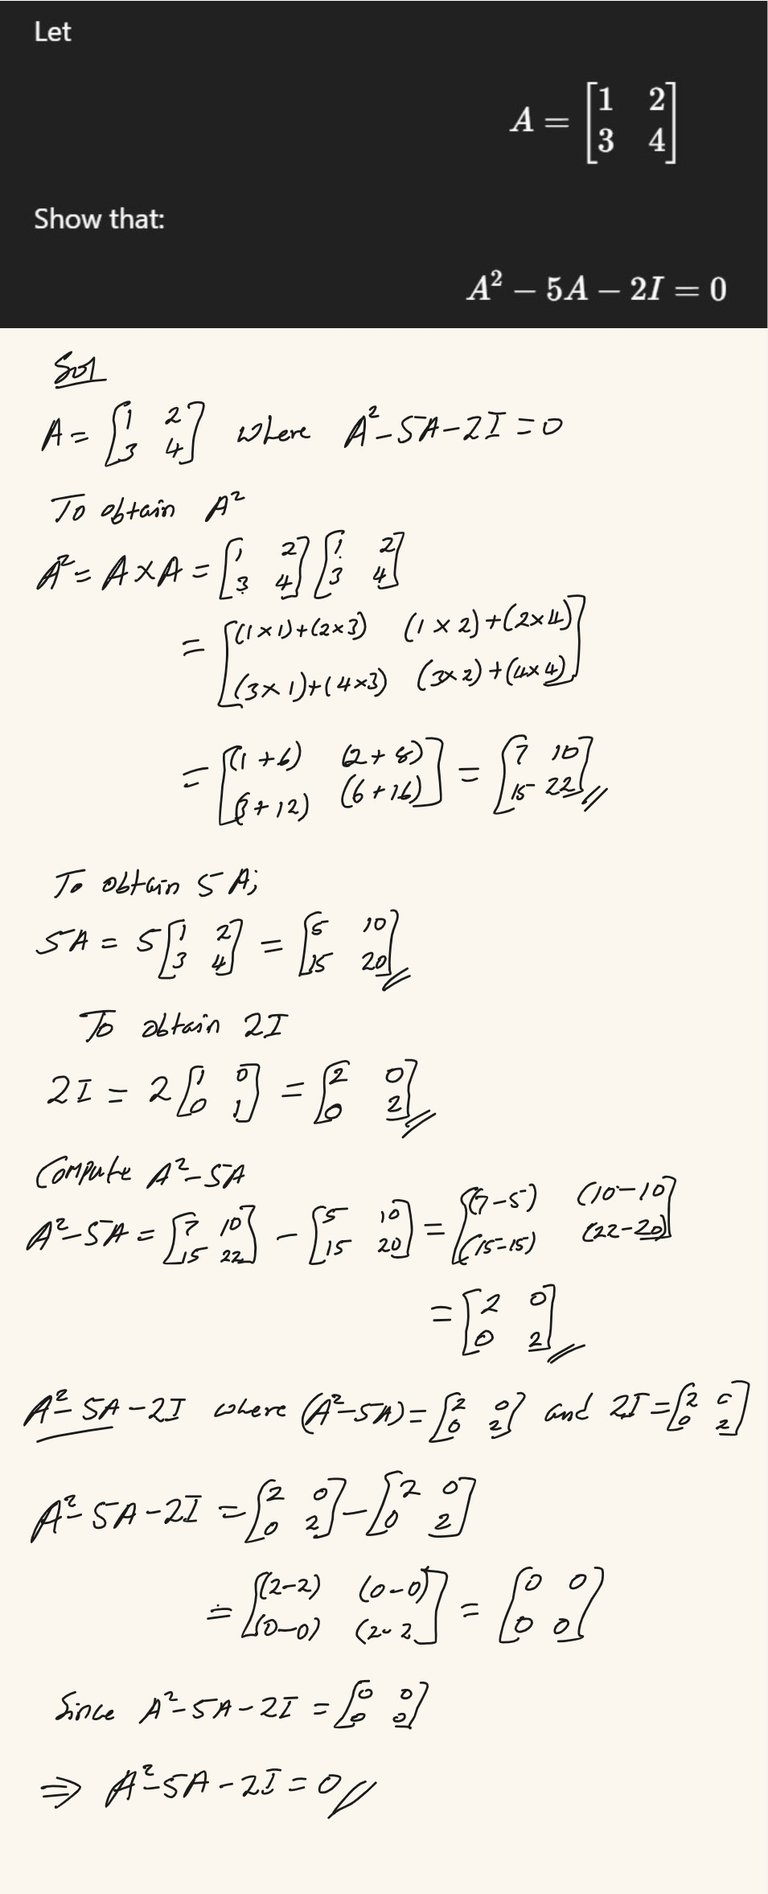 Let
A = [1 2
3 4]
Show that:
A² − 5A − 2I = 0
Sol
A = [1 2
3 4] where A²-5A-2I=0
To obtain A²
A² = A×A = [1 2
3 4] [1 2
3 4]
= [(1×1)+(2×3) (1×2)+(2×4)
(3×1)+(4×3) (3×2)+(4×4)]
= [(1+6) (2+8)
(3+12) (6+16)] = [7 10
15 22]//
To obtain 5A;
5A = 5[1 2
3 4] = [5 10
15 20]//
To obtain 2I
2I = 2[1 0
0 1] = [2 0
0 2]//
Compute A²-5A
A²-5A = [7 10
15 22] - [5 10
15 20] = [(7-5) (10-10)
(15-15) (22-20)]
= [2 0
0 2]//
A²-5A-2I where (A²-5A) = [2 0
0 2] and 2I = [2 0
0 2]
A²-5A-2I = [2 0
0 2] - [2 0
0 2]
= [(2-2) (0-0)
(0-0) (2-2] = [0 0
0 0]
Since A²-5A-2I = [0 0
0 0]
⇒ A²-5A-2I=0//